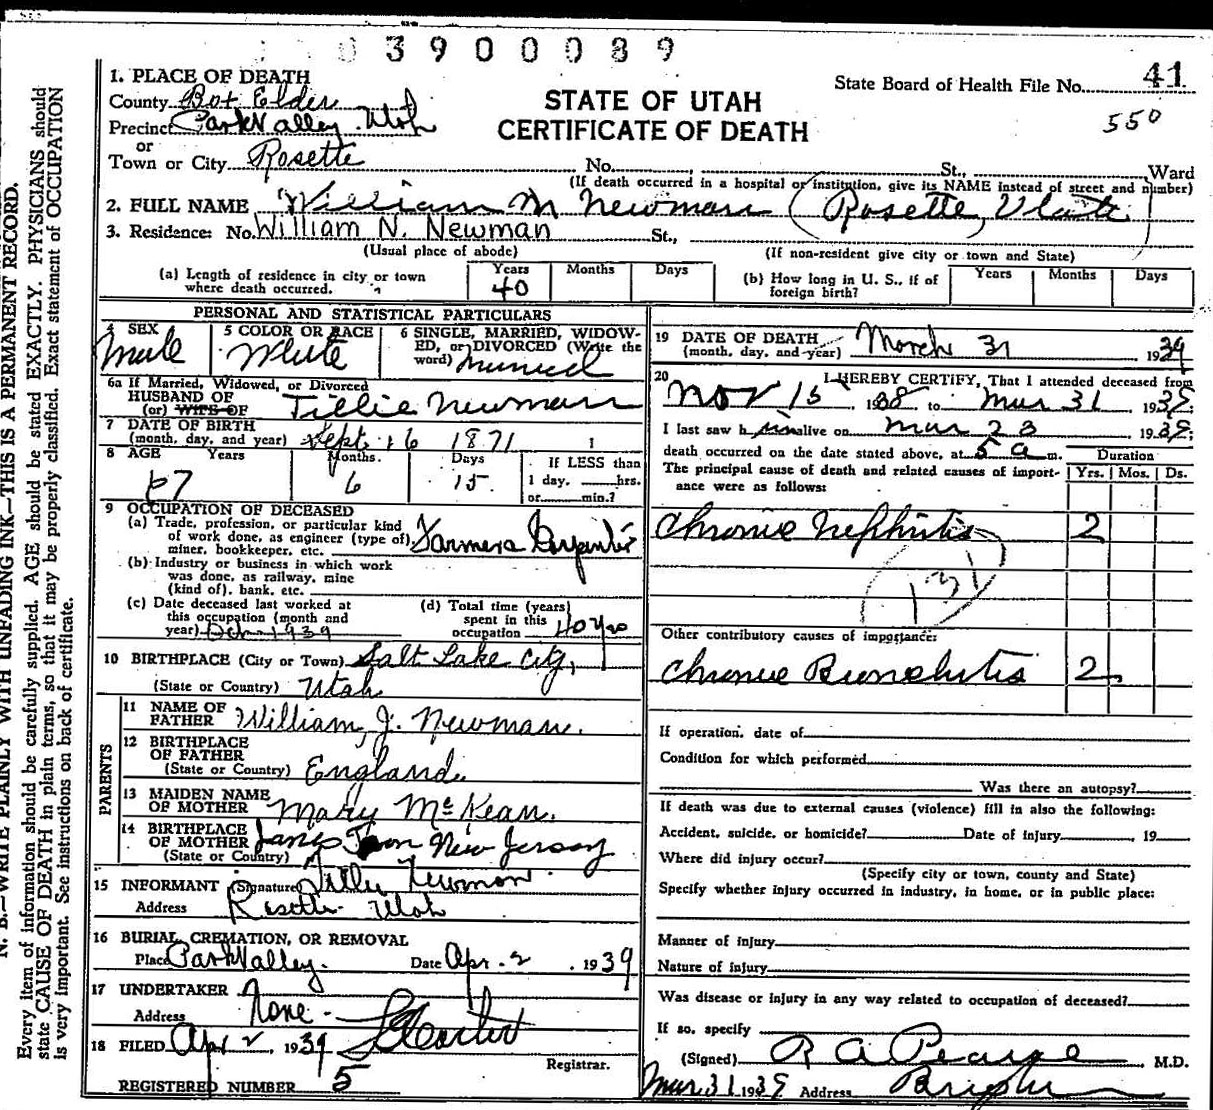 3900089
1. PLACE OF DEATH
State Board of Health File No. 41
County Box Elder
STATE OF UTAH
550
Precinct Park Valley. Utah
CERTIFICATE OF DEATH
or
Town or City Rosette No. St., Ward
(If death occurred in a hospital or institution, give its NAME instead of street and number)
2. FULL NAME William M Newman (Rosette, Utah)
3. Residence: No. William N. Newman St.,
(Usual place of abode) (If non-resident give city or town and State)
(a) Length of residence in city or town where death occurred. Years 40 Months Days
(b) How long in U. S., if of foreign birth? Years Months Days
PERSONAL AND STATISTICAL PARTICULARS
4 SEX Male
5 COLOR OR RACE White
6 SINGLE, MARRIED, WIDOWED, or DIVORCED (Write the word) Married
6a If Married, Widowed, or Divorced
HUSBAND OF
(or) WIFE OF Tillie Newman
7 DATE OF BIRTH
(month, day, and year) Sept. 16 1871
8 AGE Years 67 Months. 6 Days 15
If LESS than
1 day, hrs.
or min.?
9 OCCUPATION OF DECEASED
(a) Trade, profession, or particular kind
of work done, as engineer (type of)
miner, bookkeeper, etc. Farmer & Carpenter
(b) Industry or business in which work
was done, as railway, mine
(kind of), bank, etc.
(c) Date deceased last worked at
this occupation (month and
year) Oct 1939
(d) Total time (years)
spent in this
occupation 40 yrs
10 BIRTHPLACE (City or Town) Salt Lake City,
(State or Country) Utah
PARENTS
11 NAME OF
FATHER William J. Newman.
12 BIRTHPLACE
OF FATHER
(State or Country) England.
13 MAIDEN NAME
OF MOTHER Mary McKean.
14 BIRTHPLACE
OF MOTHER
(State or Country) New Jersey
15 INFORMANT (Signature) Tilly Newman.
Address Rosette Utah
16 BURIAL, CREMATION, OR REMOVAL
Place Park Valley. Date Apr. 2, 1939
17 UNDERTAKER None
Address
18 FILED Apr 2, 1939
Registrar.
REGISTERED NUMBER 5
19 DATE OF DEATH
(month, day, and year) March 31 1939
20 I HEREBY CERTIFY, That I attended deceased from
Nov 15 1938 to Mar 31 1939
I last saw him alive on Mar 23 1939
death occurred on the date stated above, at 5 a m. Duration
The principal cause of death and related causes of importance were as follows: Yrs. Mos. Ds.
Chronic Nephritis 2
131
Other contributory causes of importance:
Chronic Bronchitis 2
If operation, date of
Condition for which performed
Was there an autopsy?
If death was due to external causes (violence) fill in also the following:
Accident, suicide, or homicide? Date of injury , 19
Where did injury occur?
(Specify city or town, county and State)
Specify whether injury occurred in industry, in home, or in public place:
Manner of injury
Nature of injury
Was disease or injury in any way related to occupation of deceased?
If so, specify
(Signed) R A Pearse M.D.
Mar 31 1939 Address
N. B.—WRITE PLAINLY WITH UNFADING INK—THIS IS A PERMANENT RECORD.
Every item of information should be carefully supplied. AGE should be stated EXACTLY. PHYSICIANS should
state CAUSE OF DEATH in plain terms, so that it may be properly classified. Exact statement of OCCUPATION
is very important. See instructions on back of certificate.